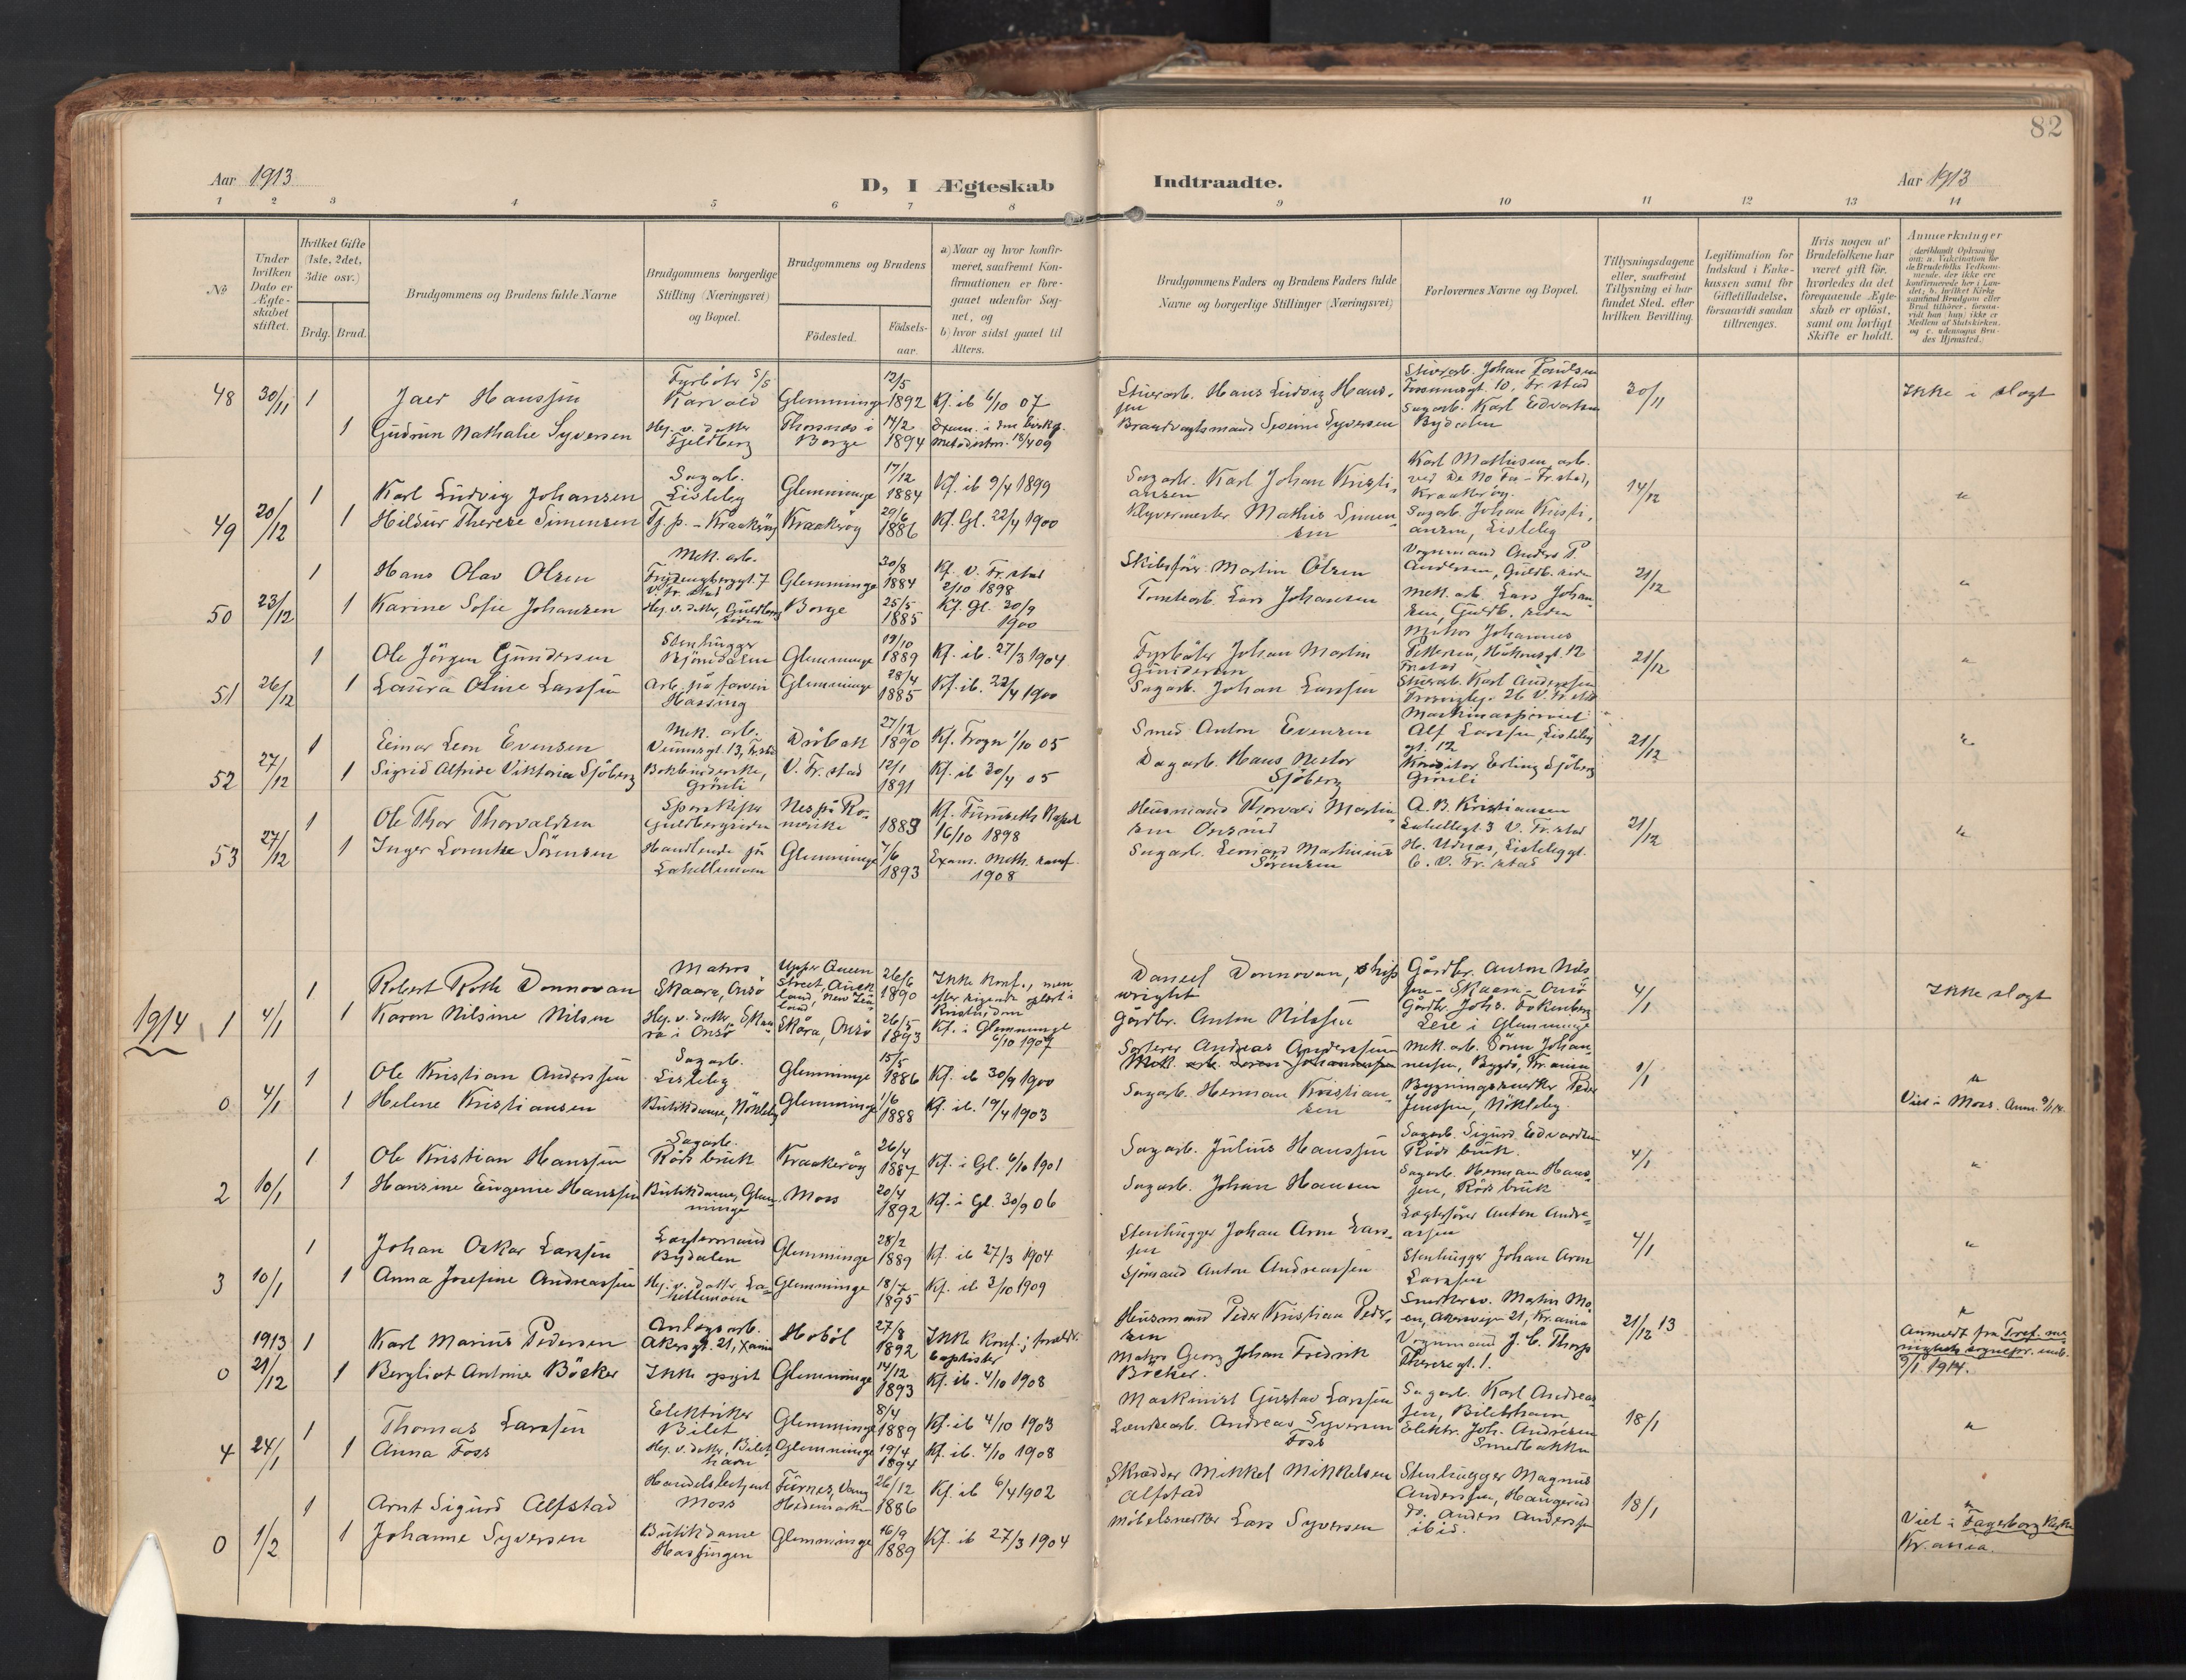 82
Aar 1913
D, I Ægteskab Indtraadte.
Aar 1913
1 2 3 4 5 6 7 8 9 10 11 12 13 14
No
Under hvilken Dato er Ægteskabet stiftet.
Hvilket Gifte (1ste, 2det, 3die osv.)
Brdg. Brud.
Brudgommens og Brudens fulde Navne
Brudgommens borgerlige Stilling (Næringsvei) og Bopæl.
Brudgommens og Brudens
Fødested.
Fødselsaar.
a) Naar og hvor konfirmeret, saafremt Konfirmationen er foregaaet udenfor Sognet, og
b) hvor sidst gaaet til Alters.
Brudgommens Faders og Brudens Faders fulde Navne og borgerlige Stillinger (Næringsvei)
Forlovernes Navne og Bopæl.
Tillysningsdagene eller, saafremt Tillysning ei har fundet Sted, efter hvilken Bevilling.
Legitimation for Indskud i Enkekassen samt for Giftetilladelse, forsaavidt saadan tiltrænges.
Hvis nogen af Brudefolkene har været gift før, hvorledes da det foregaaende Ægteskab er opløst, samt om lovligt Skifte er holdt.
Anmærkninger
48 30/11 1 Hanssen Fyrböter S/S Glemminge 12/5 1892 Kf. ib 6/10 07
Stuerarb. Hans Ludvig Hanssen Stuerarb. Johan Paulsen 30/11 Ikke i slegt
1 Gudrun Nathalie Syversen Hj. v. datter Fjeldberg Thorsnes i Borge 14/2 1894
Brandvagtsmand Syversen Sagarb. Karl Edvartsen Bydalen
1 Karl Ludvig Johansen Sagarb. Lisleby Glemminge 17/12 1884 Kf. ib 9/4 1899
Sagarb. Karl Johan Kristiansen Karl Mathisen, arb. Kraakeröy. 14/12 "
49 20/12 1 Hildur Therese Simensen Tj. p. - Kraakeröy Kraakeröy 29/6 1886 Kf. Gl. 22/4 1900
Mathis Simensen Sagarb. Johan Kristiansen, Lisleby
1 Hans Olav Olsen Mek. arb. Glemminge 30/8 1884 Kf. V. Fr.stad 2/10 1898
Skibsförer Martin Olsen Vognmand Anders P. Andersen, Guldb. siden 21/12 "
50 23/12 1 Karine Sofie Johansen Hj. v. datter, Guldbergsiden Borge 25/5 1885 Kf. Gl. 30/9 1900
Tomtearb. Lars Johansen Mek. arb. Lars Johansen, Guldb. siden
1 Ole Jörgen Gundersen Stenhugger Bjöndalen Glemminge 19/10 1889 Kf. ib. 27/3 1904
Fyrböter Johan Martin Gundersen Matros Johannes Pettersen, Haakonsgt. 12 Fr.stad 21/12 "
51 26/12 1 Laura Oline Larssen Glemminge 28/4 1885 Kf. ib. 22/4 1900
Sagarb. Johan Larssen Stuerarb. Karl Anderssen
1 Einar Leon Evensen Mek. arb. Dröbak 27/12 1890 Kf. Frogn 1/10 05
Smed Anton Evensen Alf Larssen, Lisleby gt. 12 21/12 "
52 27/12 1 Sigrid Alfride Viktoria Sjöberg Bokbinderske, Grönli V. Fr.stad 12/1 1891 Kf. ib 30/4 05
Dagarb. Hans Nestor Sjöberg Konditor Erling Sjöberg Grönli
1 Ole Thor Thorvaldsen Guldbergsiden Nes på Romerike 1883 16/10 1898
Husmand Thorvald Martinsen A. B. Kristiansen 21/12 "
53 27/12 1 Inger Lorentze Sörensen Handlende på Glemminge 7/6 1893 Exam. Meth. 1908
Sagarb. Martinius Sörensen H. Udnes, Lislebygt. 6. V. Fr.stad
1 Robert Donnovan Matros Skaara, Onsö Upper Queen Street, Auckland, New Zealand 26/6 1890 Ikke konf., men
Daniel Donnovan, shipwright Gårdbr. Anton Nilssen - Skaara - Onsö 4/1 Ikke slegt
1914 1 4/1 1 Karen Nilsine Nilsen Hj. v. datter, Skaara i Onsö Skåra, Onsö 26/5 1893 Kf. i Glemminge 6/10 1907
Gårdbr. Anton Nilssen Gårdbr. Johs. Leie i Glemminge
1 Ole Kristian Anderssen Sagarb. Lisleby Glemminge 15/5 1886 Kf. ib 30/9 1900
Sorterer Andreas Anderssen Mek. arb. Sören Johannessen Mek. arb. Sören Johannessen, Bygdö, Kr.ania 1/1 "
0 4/1 1 Helene Kristiansen Butikdame, Nökleby Glemminge 1/6 1888 Kf. ib. 19/4 1903
Sagarb. Herman Kristiansen Bygningssnekker Peder Jenssen, Nökleby Viet i Moss. Anm. 9/1 14.
1 Ole Kristian Hanssen Sagarb. Röds bruk Kraakeröy 26/4 1887 Kf. i Gl. 6/10 1901
Sagarb. Julius Hanssen Sagarb. Sigurd Edvardsen Röds bruk. 4/1 "
2 10/1 1 Hansine Eugenie Hanssen Butikdame, Glemminge Moss 20/4 1892 Kf. i Gl. 30/9 06
Sagarb. Johan Hansen Sagarb. Herman Hanssen, Röds bruk
1 Johan Oskar Larssen Bydalen Glemminge 28/2 1889 Kf. ib 27/3 1904
Stenhugger Johan Arne Larssen Anton Andreassen 4/1 "
3 10/1 1 Anna Josefine Andreassen Hj. v. datter, Lahellemoen Glemminge 18/7 1895 Kf. ib 3/10 1909
Sjömand Anton Andreassen Stenhugger Johan Arne Larssen
1913 1 Karl Marius Pedersen Anlegsarb. Akersgt. 21, Xania Hobøl 27/8 1892 Ikke konf.; foreldr. baptister
Husmand Peder Kristian Pedersen Snekkersv. Martin Moen, Akersveien 21, Kr.ania 21/12 13 "
0 21/12 1 Bergliot Antonie Böcker Ikke opgit Glemminge 14/12 1893 Kf. ib. 4/10 1908
Matros Georg Johan Fredrik Böcker. Vognmand J. C. Theresegt. 1. Anmeldt fra Tref. menigheds sognepr. emb. 9/1 1914.
1 Thomas Larssen Elektriker Bilet Glemminge 8/4 1889 Kf. ib 4/10 1903
Maskinist Gustav Larssen Sagarb. Karl Andreassen, Biletshavn 18/1 "
4 24/1 1 Anna Foss Hj. v. datter, Bilethavn Glemminge 19/4 1894 Kf. ib. 4/10 1908
Lensearb. Andreas Syversen Foss Elektr. Joh. Andresen Smedbakken
1 Arnt Sigurd Alfstad Handelsbetjent Moss Furnes, Vang Hedemarken 26/12 1886 Kf. ib 6/4 1902
Skrædder Mikkel Mikkelsen Alfstad Stenhugger Magnus Anderssen, Haugerud 18/1 "
0 1/2 1 Johanne Syversen Butikdame Hassingen Glemminge 16/9 1889 Kf. ib 27/3 1904
Möbelsnekker Lars Syversen do. Anders Anderssen ibid. Viet i Fagerborg Kirke Kr.ania.